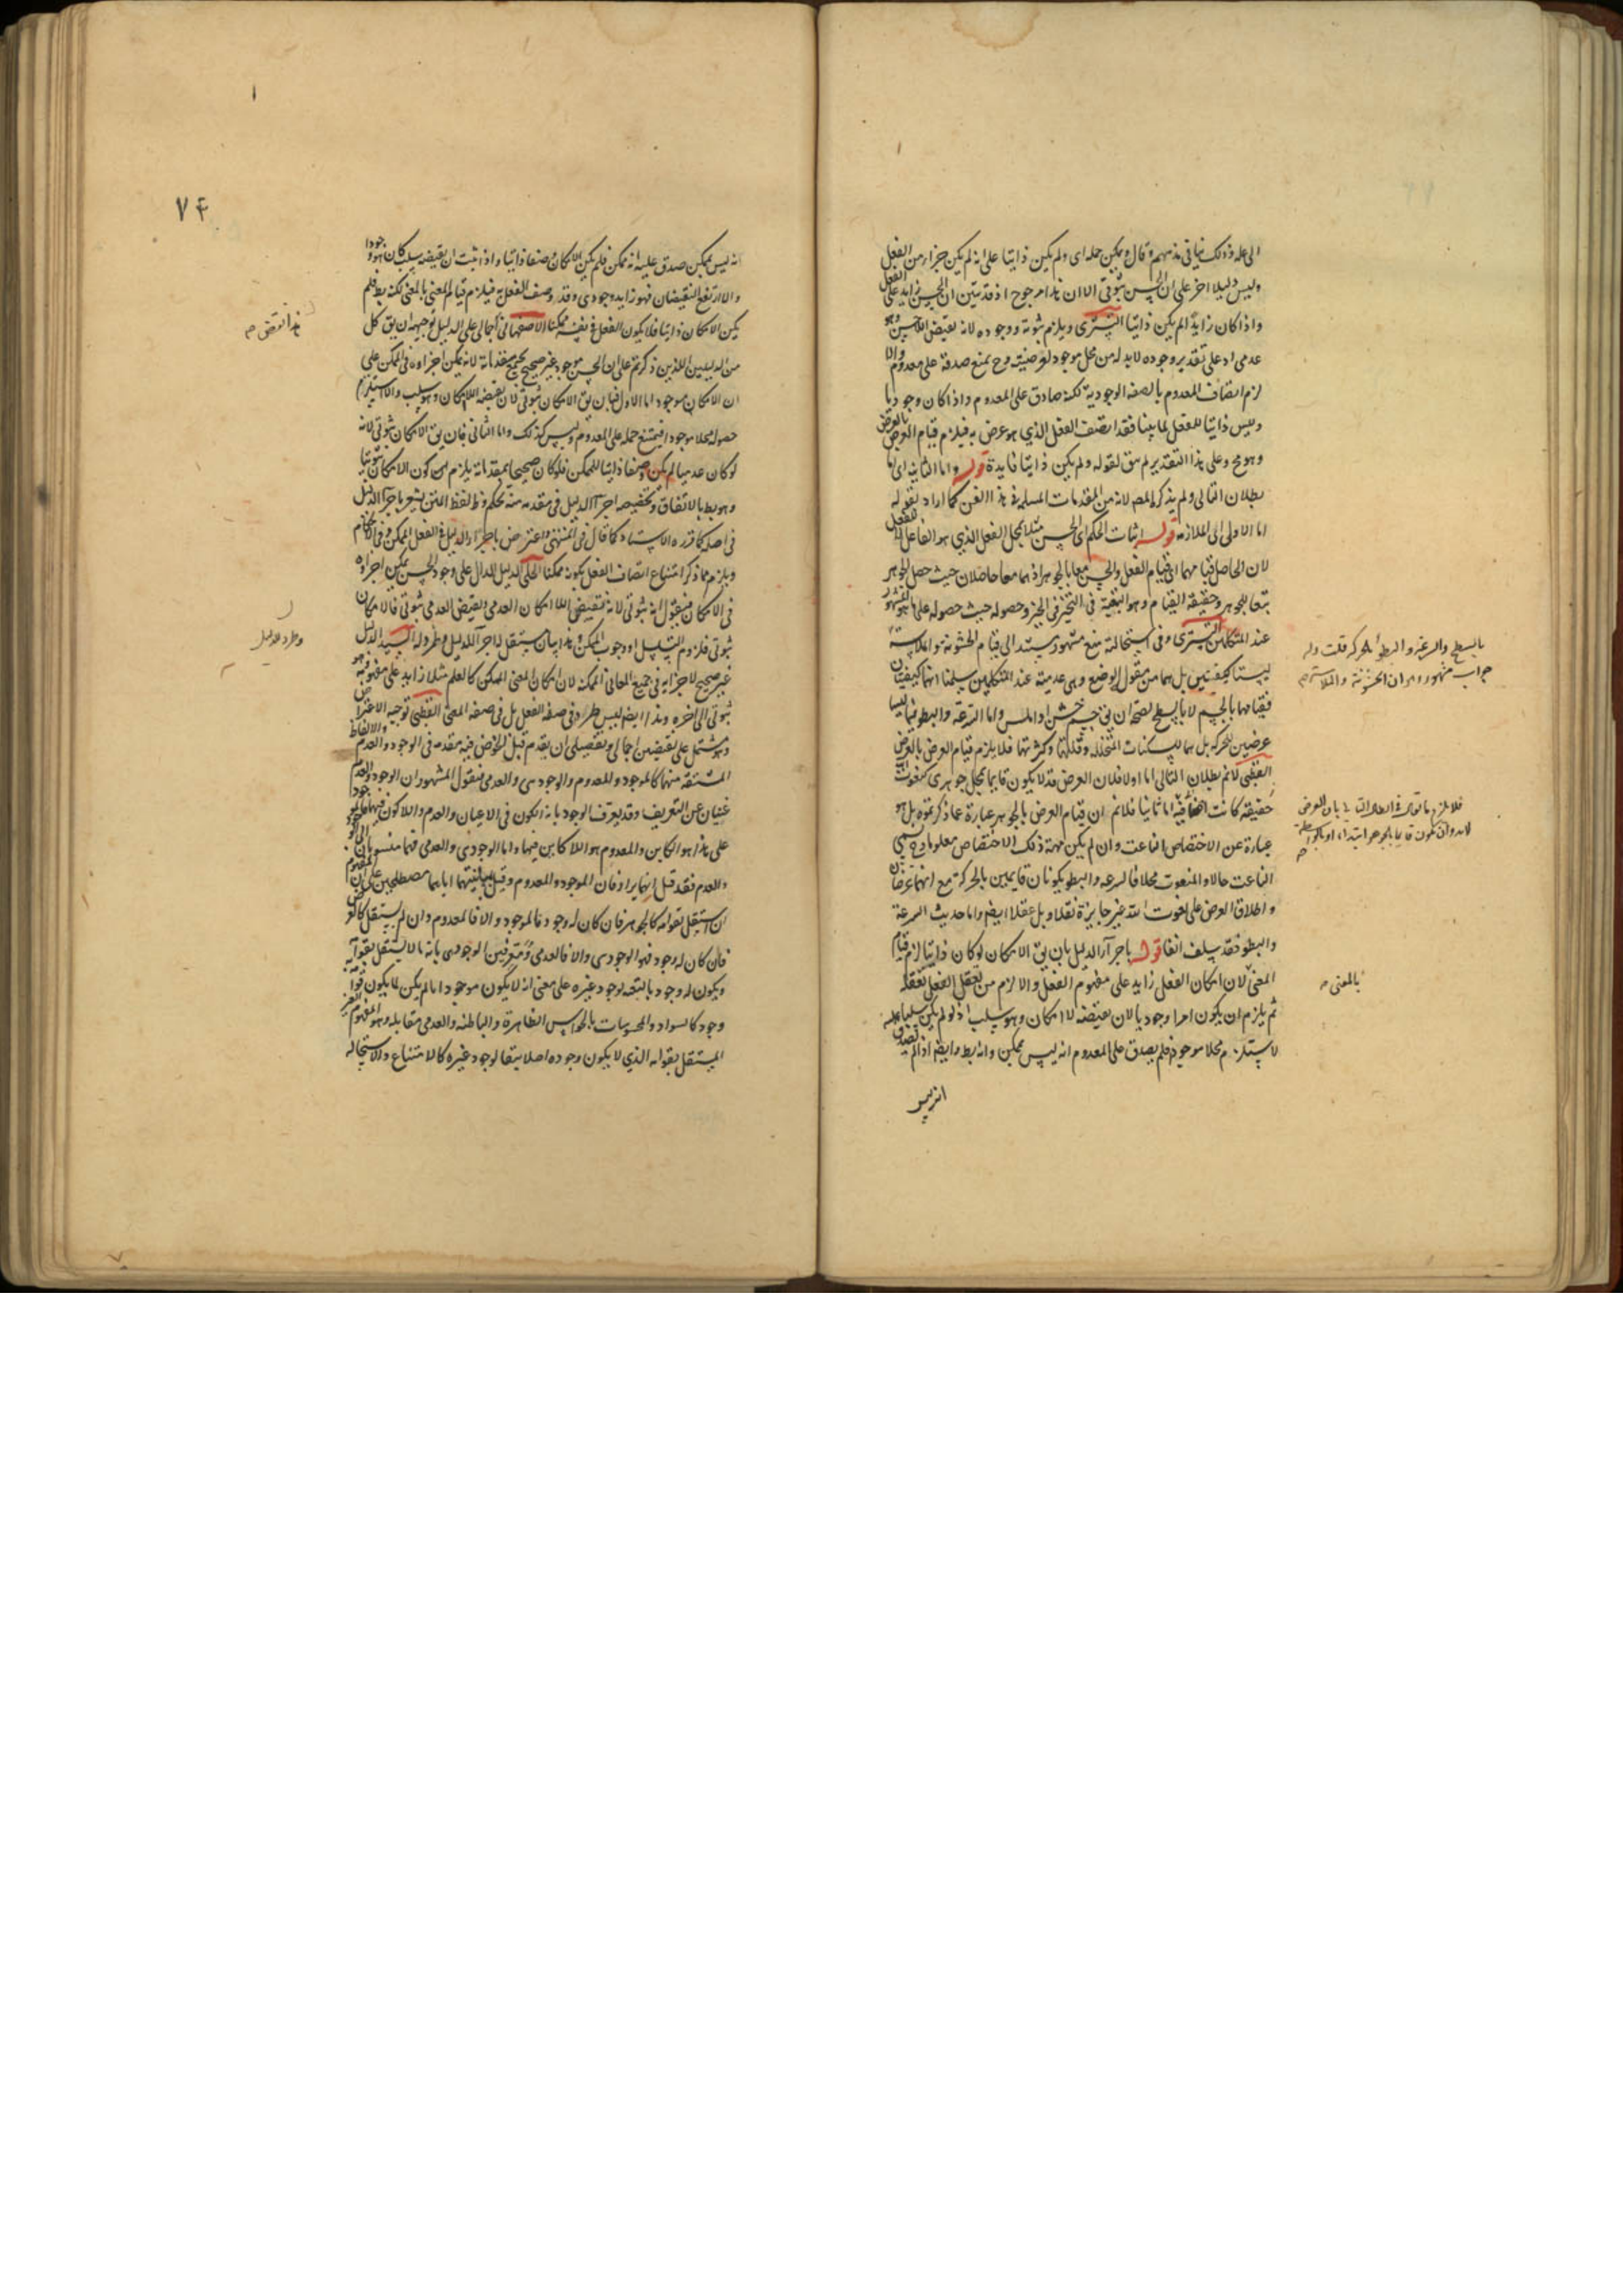 الى علة وذلك ينافى مذهبهم قال ويمكن حمله اى ولم يكن ذاتيا على انه لم يكن جزءا من الفعل
وليس دليلا اخر على ان الحسن ثبوتى الا ان هذا مرجوح اذ قد تبين ان الحسن زايد على الفعل
واذا كان زايدا لم يكن ذاتيا التسترى ويلزم ثبوته ووجوده لانه نقيض اللاحسن وهو
عدمى اذ على تقدير وجوده لا بد له من محل موجود لعرضيته وح يمتنع صدقه على معدوم والا
لزم اتصاف المعدوم بالصفة الوجودية لكنه صادق على المعدوم واذا كان وجوديا
وليس ذاتيا للفعل لما بينا فقد اتصف الفعل الذي هو عرض به فيلزم قيام العرض بالعرض
وهو مح وعلى هذا التقدير لم يبق لقوله ولم يكن ذاتيا فايدة قوله واما الثانية اى
بطلان التالى ولم يذكره المصر لانه من المقدمات المسلمة فى هذا الفن كما اراد بقوله
اما الاولى الى الملازمة قوله اثبات الحكم اى الحسن مثلا لمحل الفعل الذي هو الفاعل لا للفعل
لان الحاصل قيامهما اى قيام الفعل والحسن معا بالجوهر اذ هما معا حاصلان حيث حصل الجوهر
تبعا للجوهر وحقيقة القيام وهو التبعية فى التحيز فى الحيز وحصوله حيث حصوله على ما هو المشهور
عند المتكلمين التسترى وفى استحالته منع مشهور يستند الى قيام الخشونة والملاسة
ليستا كيفيتين بل هما من مقولة الوضع وهى عدمية عند المتكلمين سلمنا انهما كيفيتان
فقيامهما بالجسم لا بالسطح لصحة ان يق جسم خشن او املس واما السرعة والبطؤ فليسا
عرضيين للحركة بل هما للسكنات المتخللة وقلتها وكثرتها فلا يلزم قيام العرض بالعرض
القطبى لا نم بطلان التالى اما اولا فلان العرض قد لا يكون قايما بمحل جوهرى كنعوت الله
حقيقة كانت او اضافية اما ثانيا فلا نم ان قيام العرض بالجوهر عبارة عما ذكرتموه بل هو
عبارة عن الاختصاص الناعت وان لم يكن مهية ذلك الاختصاص معلوما وح يسمى
الناعت حالا والمنعوت محلا فالسرعة والبطؤ يكونان قايمين بالحركة مع انهما عرضان
واطلاق العرض على نعوت الله غير جايزة نقلا وبل عقلا ايضا واما حديث السرعة
والبطؤ فقد سلف انفا قوله باجراء الدليل بان يق الامكان لو كان ذاتيا لزم قيام
المعنى لان امكان الفعل زايد على مفهوم الفعل والا لزم من تعقل الفعل تعقله
ثم يلزم ان يكون امرا وجوديا لان نقيضه لا امكان وهو سلب اذ لو لم يكن سلبا
لاستلزم محلا موجودا فلم يصدق على المعدوم انه ليس بممكن وانه بط وايضا اذا لم يصدق
انه ليس
بالسطح والسرعة والبطؤ بالحركة قلت وله
جواب مشهور وهو ان الخشونة والملاسة
فلا يلزم
لا بد وان يكون قايما بالجوهر ابتداء او بالواسطة
بالمعنى
٧٤
انه ليس بممكن صدق عليه انه ممكن فلم يكن الامكان وصفا ذاتيا واذا ثبت ان نقيضه سلب كان هو وجودا
والا ارتفع النقيضان فهو زايد وجودى وقد وصف الفعل به فيلزم قيام المعنى بالمعنى لكنه بط فلم
يكن الامكان ذاتيا فلا يكون الفعل فى نفسه ممكنا الاصفهانى اجمالى على الدليل توجيهه ان يق كل
من الدليلين اللذين ذكرتم على ان الحسن موجود غير صحيح بجميع مقدماته لانه يمكن اجراؤه فى الممكن على
ان الامكان موجود اما الاول فبان يق الامكان ثبوتى لان نقيضه اللاامكان وهو سلب والا استلزم
حصوله محلا موجودا فيمتنع حمله على المعدوم وليس كذلك واما الثانى فبان يق الامكان ثبوتى لانه
لو كان عدميا لم يكن وصفا ذاتيا للممكن فلو كان صحيحا بمقدماته يلزم كون الامكان ثبوتيا
وهو بط بالاتفاق وتخصيصه اجراء الدليل فى مقدمة منه تحكم وظ لفظ المتن يشعر باجراء الدليل
فى اصله كما قرره الاستاد كما قال فى المنتهى واعترض باجراء الدليل فى الفعل الممكن وفى الاحكام
ويلزم مما ذكر امتناع اتصاف الفعل بكونه ممكنا الحلى الدليل الدال على وجود الحسن يمكن اجراؤه
فى الامكان فنقول انه ثبوتى لانه نقيض اللاامكان العدمى ونقيض العدمى ثبوتى فالامكان
ثبوتى فلزوم التسلسل او وجوب الممكن وهذا بيان مستقل لاجراء الدليل وطرد له السيد الدليل
غير صحيح لاجرايه فى جميع المعانى الممكنة لان امكان المعنى الممكن كالعلم مثلا زايد على مفهومه وهو
ثبوتى الى اخره وهذا ايضا ليس طردا فى صفة الفعل بل فى صفة المعنى القطبى توجيه الاعتراض
وهو مشتمل على نقيضين اجمالى وتفصيلى ان يقدم قبل الخوض فيه مقدمة فى الوجود والعدم والالفاظ
المشتقة منهما كالموجود والمعدوم والوجودى والعدمى فنقول المشهور ان الوجود والعدم
غنيان عن التعريف وقد يعرف الوجود بانه الكون فى الاعيان والعدم واللاكون فيها فالموجود
على هذا هو الكاين والمعدوم هو اللاكاين فيها واما الوجودى والعدمى فهما منسوبان الى الوجود
والعدم فقد قيل انهما يرادفان الموجود والمعدوم وقيل مصطلحين على ان المفهوم
ان استقل بقوامه كالجوهر فان كان له وجود فالموجود والا فالمعدوم وان لم يستقل كالعرض
فان كان له وجود فهو الوجودى والا فالعدمى ومعرفين الوجودى بانه ما لا يستقل بقوامه
ويكون له وجود بالتبعة لوجود غيره على معنى انه لا يكون موجودا ما لم يكن لما يكون قوامه
وجود كالسواد والمحسوسات بالحواس الظاهرة والباطنة والعدمى مقابله وهو المفهوم الغير
المستقل بقوامه الذي لا يكون وجوده اصلا تبعا لوجود غيره كالامتناع والاستحالة
هذا نقض
وطرد للدليل